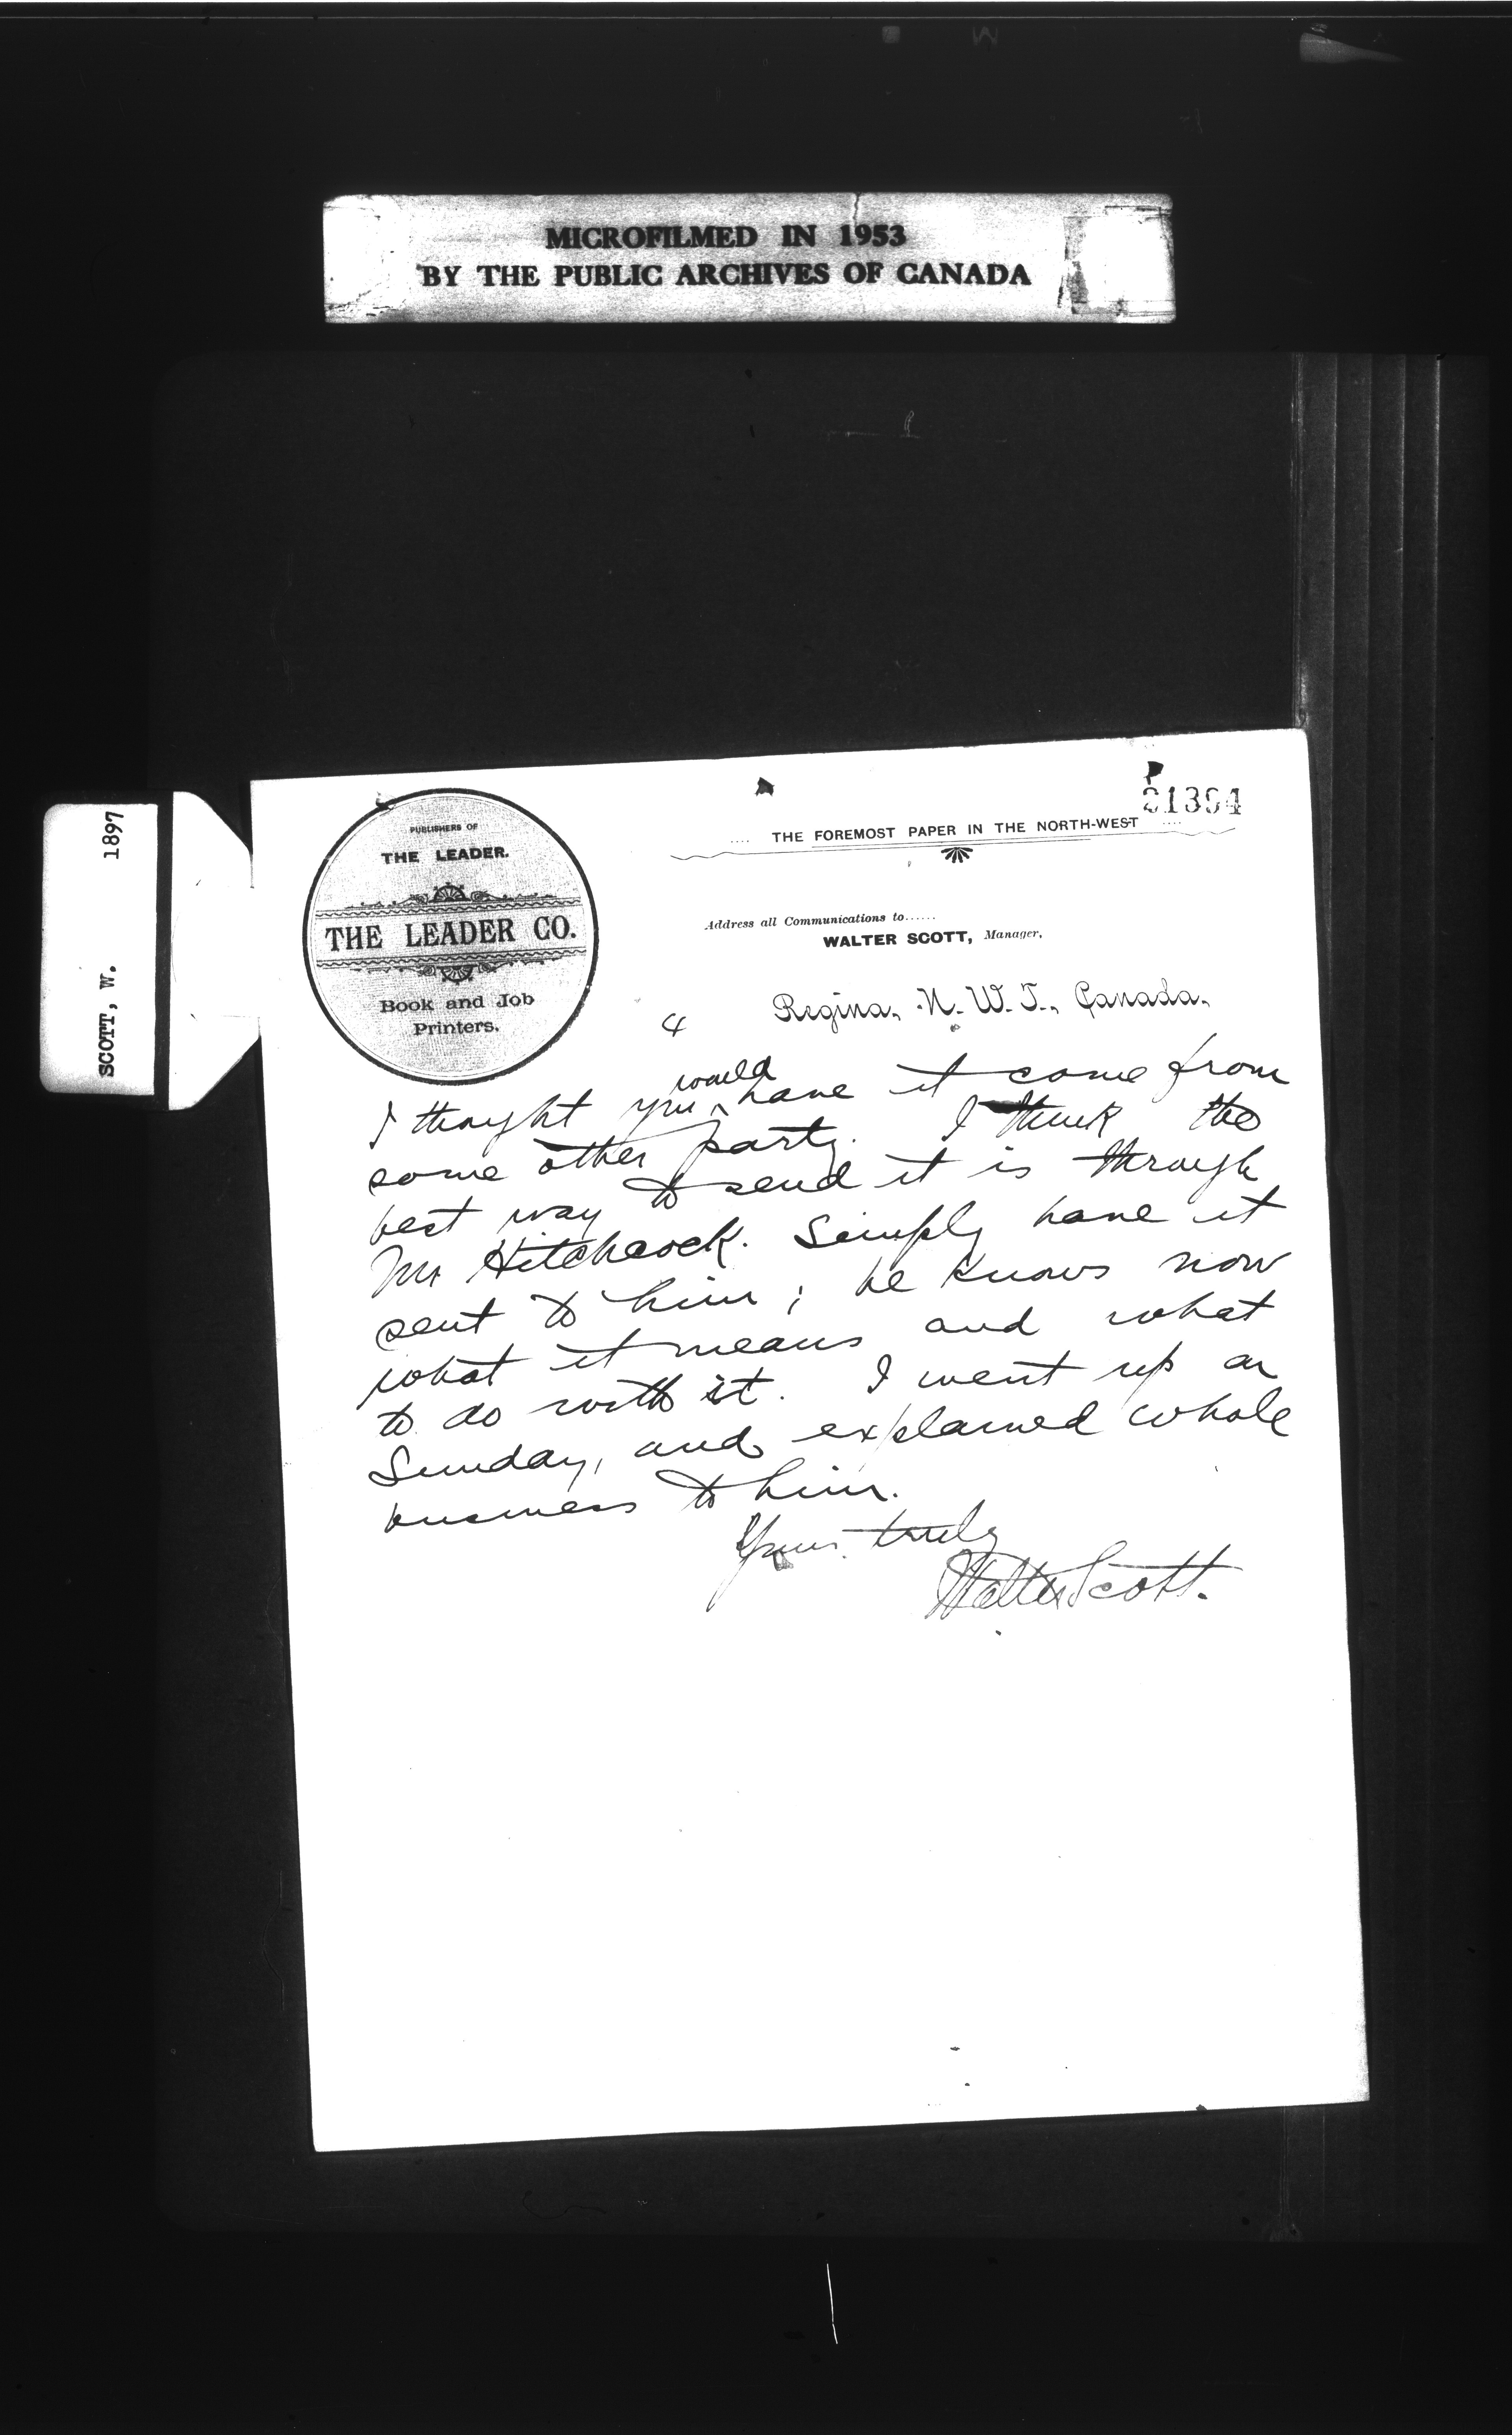 MICROFILMED IN 1953
BY THE PUBLIC ARCHIVES OF CANADA
SCOTT, W. 1897
21394
PUBLISHERS OF
THE LEADER.
THE LEADER CO.
Book and Job
Printers.
.... THE FOREMOST PAPER IN THE NORTH-WEST ....
Address all Communications to......
WALTER SCOTT, Manager,
Regina, N. W. T., Canada,
4
would
I thought you ^ have it come from
some other party. I think the
best way to send it is through
Mr Hitchcock. Simply have it
sent to him; he knows now
what it means and what
to do with it. I went up on
Sunday, and explained whole
business to him.
Yours truly
Walter Scott.